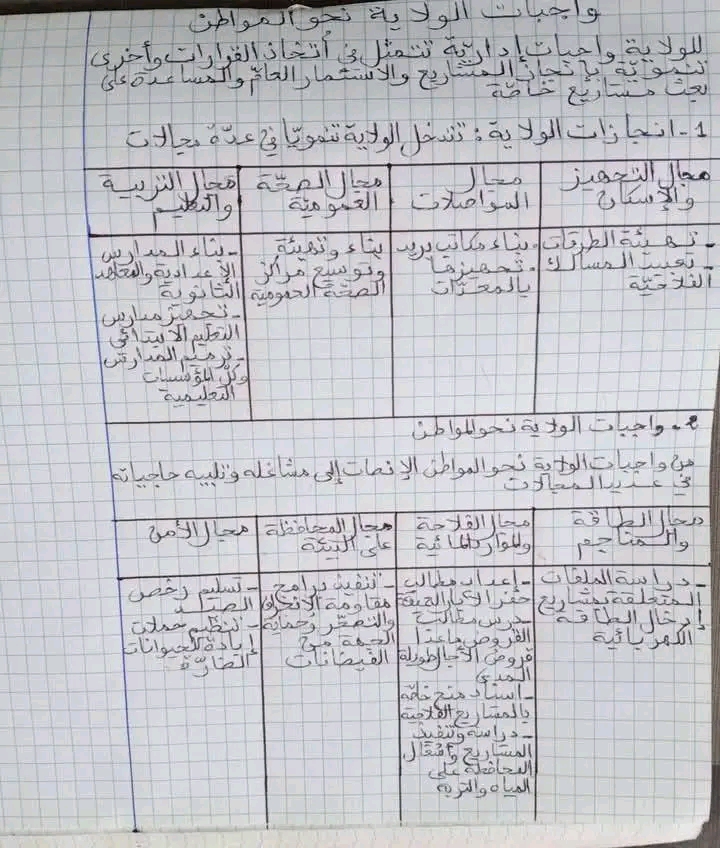 واجبات الولاية نحو المواطن
للولاية واجبات إدارية تتمثل في أتخاذ القرارات وأخرى
تنموية بإنجاز المشاريع والاستثمار العام والمساعدة على
بعث مشاريع خاصة
1- انجازات الولاية: تتدخل الولاية تنمويا في عدة مجالات
مجال التجهيز
والإسكان
مجال
المواصلات
مجال الصحة
العمومية
مجال التربية
والتعليم
- تهيئة الطرقات
- تعبيد المسالك
الفلاحية
- بناء مكاتب بريد
- تجهيزها
بالمعدات
بناء وتهيئة
وتوسيع مراكز
الصحة العمومية
- بناء المدارس
الإعدادية والمعاهد
الثانوية
- تجهيز مدارس
التعليم الابتدائي
- ترميم المدارس
وكل المؤسسات
التعليمية
2- واجبات الولاية نحو المواطن
من واجبات الولاية نحو المواطن الإنصات إلى مشاغله وتلبية حاجياته
في عديد المجالات
مجال الطاقة
والمناجم
مجال الفلاحة
والموارد المائية
مجال المحافظة
على البيئة
مجال الأمن
- دراسة الملفات
المتعلقة بمشاريع
إدخال الطاقة
الكهربائية
- إعداد مطالب
حفر الآبار العميقة
- درس مطالب
القروض ماعدا
قروض الآجال طويلة
المدى
- اسناد منح خاصة
بالمشاريع الفلاحية
- دراسة وتنفيذ
المشاريع وأشغال
المحافظة على
المياه والتربة
- تنفيذ برامج
مقاومة الانجراف
والتصحر وحماية
الجهة من
الفيضانات
- تسليم رخص
الصيد
- تنظيم حملات
إبادة للحيوانات
الضارة